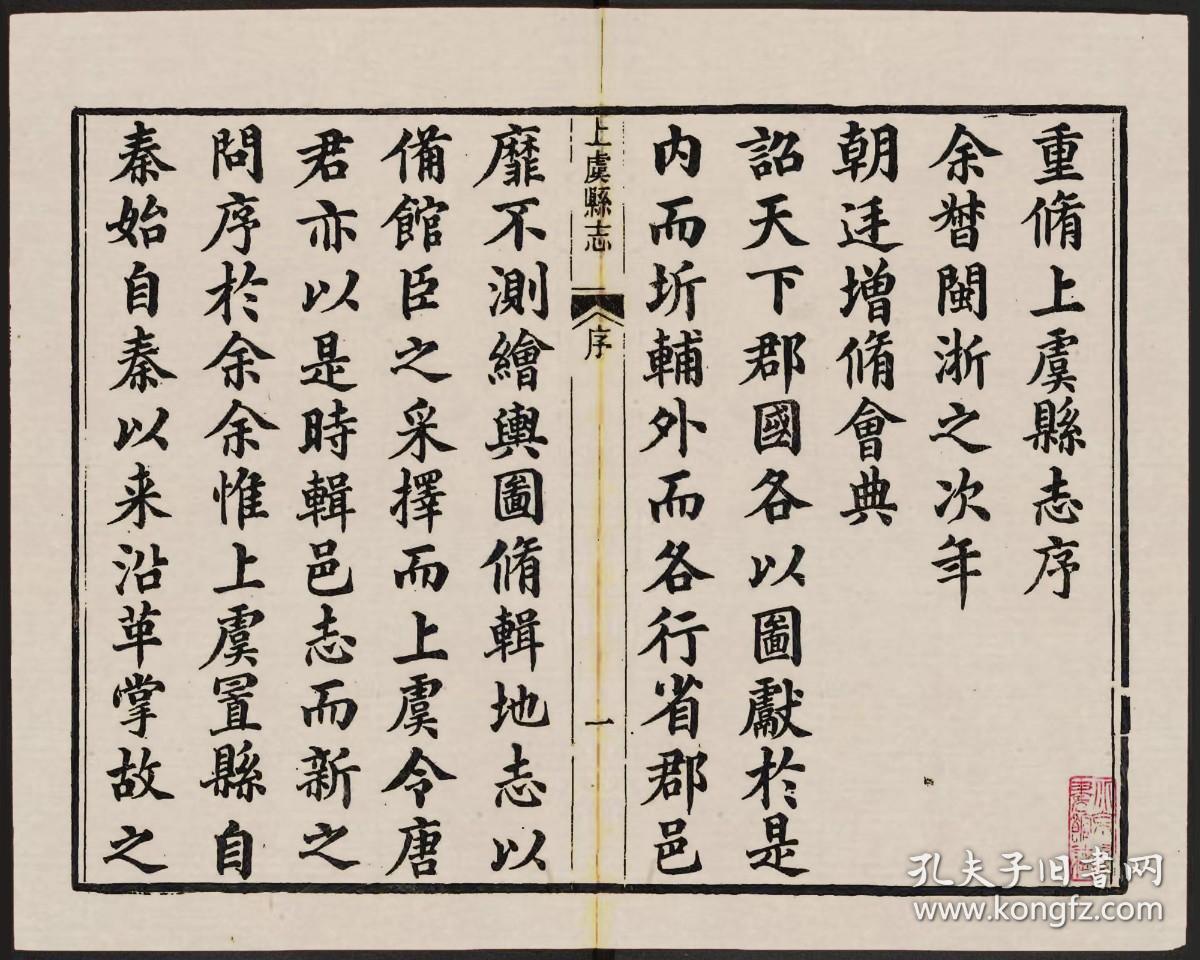 重脩上虞縣志序
余督閩浙之次年
朝廷增脩會典
詔天下郡國各以圖獻於是
内而圻輔外而各行省郡邑
上虞縣志
序
一
靡不測繪輿圖脩輯地志以
備館臣之采擇而上虞令唐
君亦以是時輯邑志而新之
問序於余余惟上虞置縣自
秦始自秦以来沿革掌故之
孔夫子旧书网
www.kongfz.com